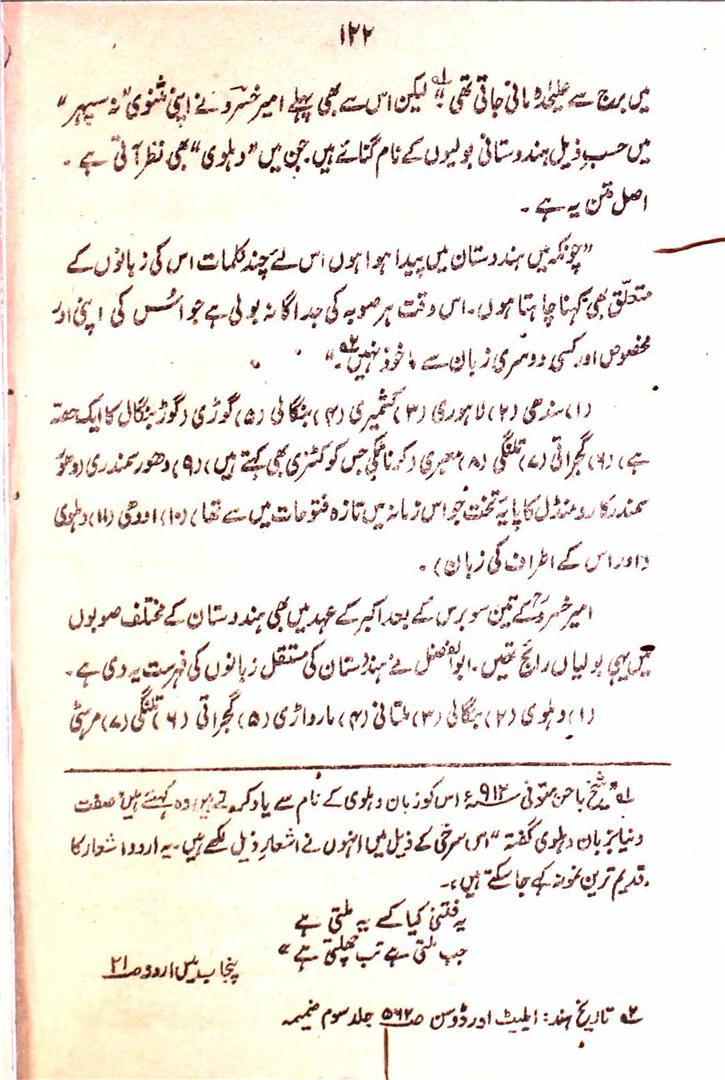 ۱۲۲
میں برج سے علیحدہ مانی جاتی تھی؂۱ لیکن اس سے بھی پہلے امیر خسرو نے اپنی مثنوی "نہ سپہر"
میں حسبِ ذیل ہندوستانی بولیوں کے نام گنائے ہیں۔ جن میں "دہلوی" بھی نظر آتی ہے۔
اصل متن یہ ہے۔
"چونکہ میں ہندوستان میں پیدا ہوا ہوں اس لئے چند کلمات اس کی زبانوں کے
متعلق بھی کہنا چاہتا ہوں۔ اس وقت ہر صوبہ کی جداگانہ بولی ہے جو اُس کی اپنی اور
مخصوص اور کسی دوسری زبان سے ماخوذ نہیں؂۲۔"
(۱) سندھی (۲) لاہوری (۳) کشمیری (۴) بنگالی (۵) گوڑی (گوڑ بنگال کا ایک حصّہ
ہے) (۶) گجراتی (۷) تلنگی (۸) معبری (کرناٹکی جس کو کنٹری بھی کہتے ہیں) (۹) دھور سمندری (دھور
سمندر کارومنڈل کا پایۂ تخت جو اس زمانہ میں تازہ فتوحات میں سے تھا) (۱۰) اودھی (۱۱) دہلوی
(اور اس کے اطراف کی زبان)۔
امیر خسروؒ کے تین سو برس کے بعد اکبر کے عہد میں بھی ہندوستان کے مختلف صوبوں
میں یہی بولیاں رائج تھیں۔ ابوالفضل نے ہندوستان کی مستقل زبانوں کی فہرست یہ دی ہے۔
(۱) دہلوی (۲) بنگالی (۳) ملتانی (۴) مارواڑی (۵) گجراتی (۶) تلنگی (۷) مرہٹی
؂۱ "شیخ باجن متوفی ۹۱۲ء اس کو زبان دہلوی کے نام سے یاد کرتے ہیں، وہ کہتے ہیں "صفت
دنیا بزبان دہلوی گفتہ" اس سرخی کے ذیل میں انہوں نے اشعار ذیل لکھے ہیں۔ یہ اردو اشعار کا
قدیم ترین نمونہ کہے جا سکتے ہیں،۔
یہ فتنی کیا کے یہ ملتی ہے
جب ملتی ہے تب چھلتی ہے"
پنجاب میں اردو صـ ۲۱
؂۲ تاریخ ہند: ایلیٹ اور ڈوسن صـ ۵۶۲ جلد سوم ضمیمہ